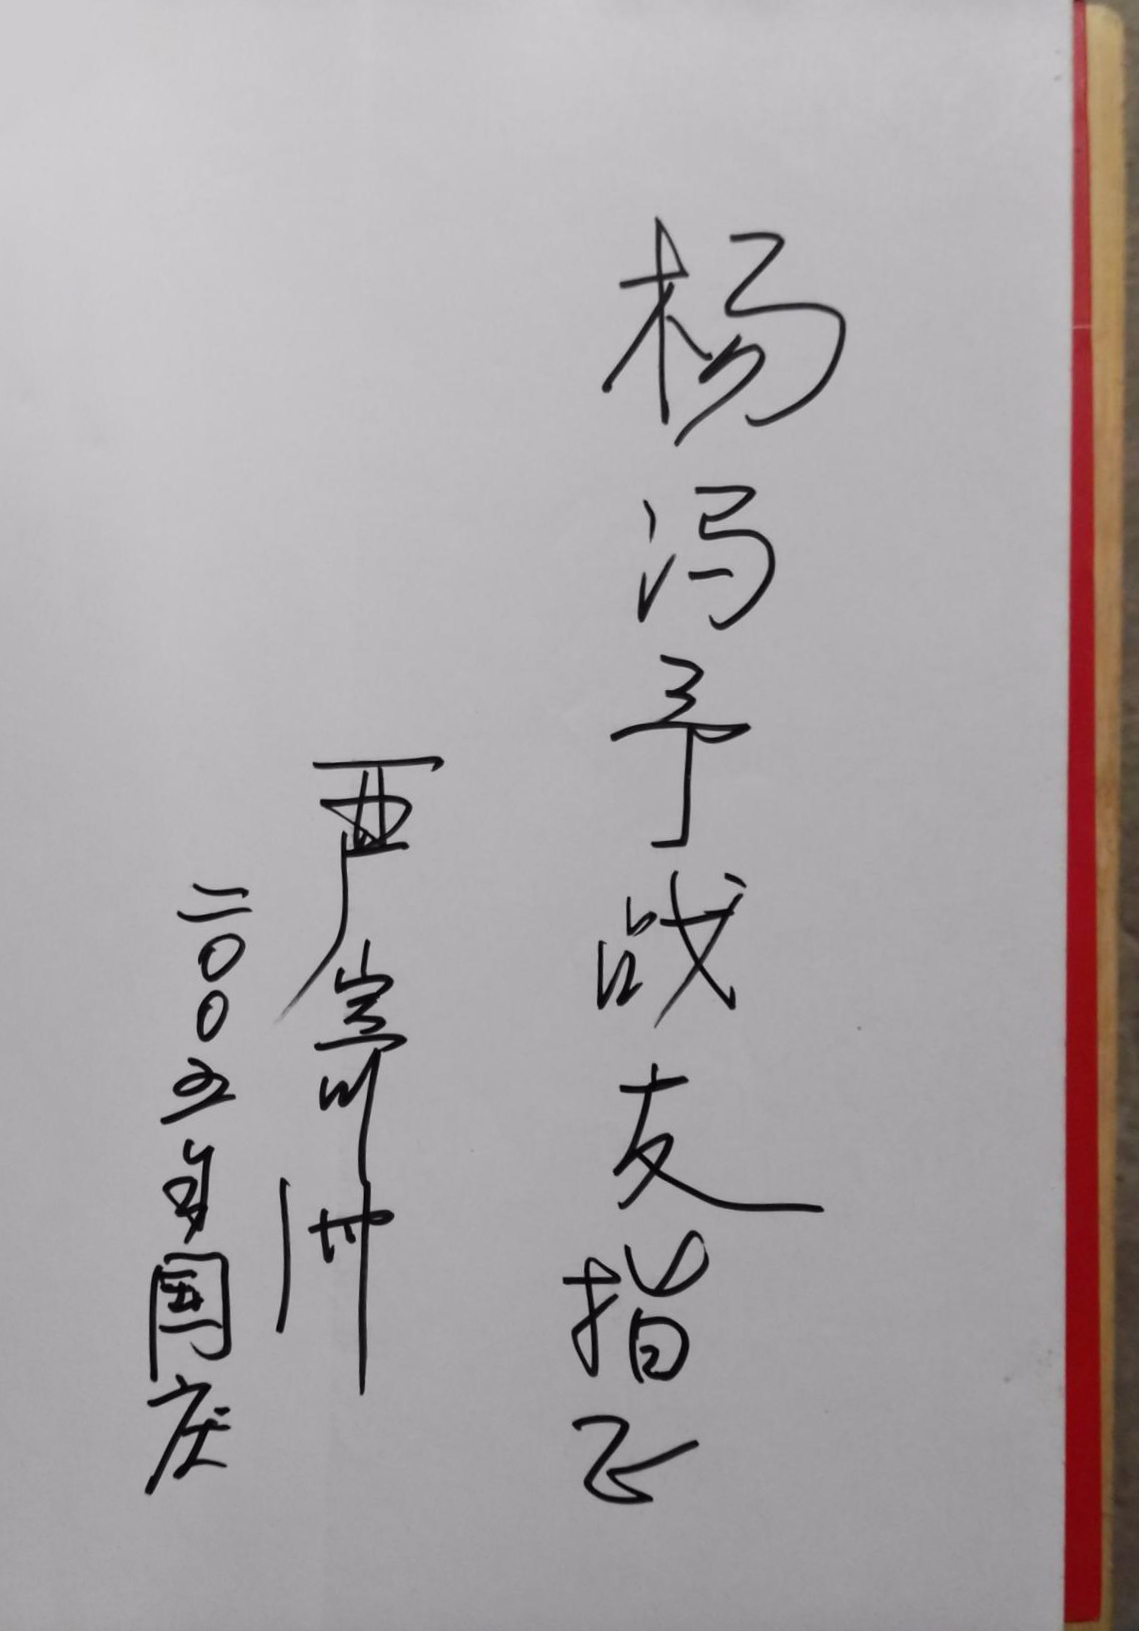 杨冯予战友指正
严崇洲
二〇〇五年国庆